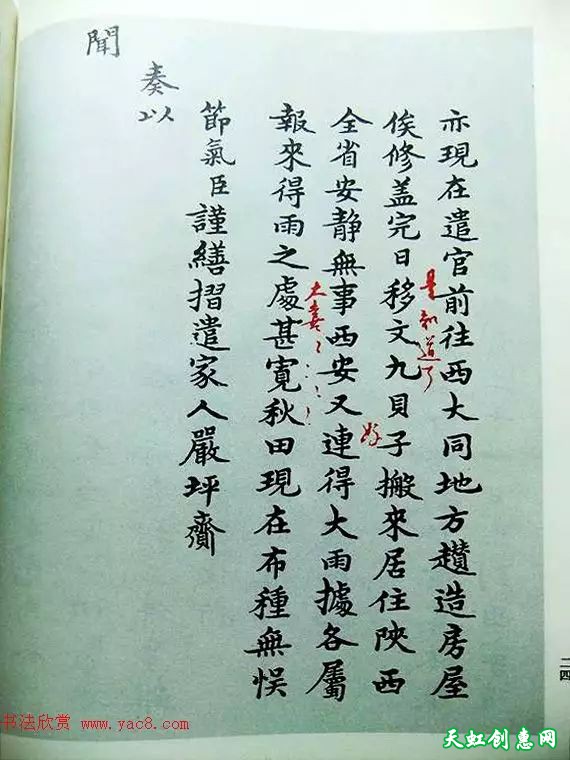 亦現在遣官前往西大同地方趲造房屋
俟修盖完日移文九貝子搬來居住陝西
全省安靜無事西安又連得大雨據各屬
報來得雨之處甚寬秋田現在布種無悮
節氣臣謹繕摺遣家人嚴坪齎
奏以
聞
是知道了
好
大喜
二四
书法欣赏 www.yac8.com
天虹创惠网